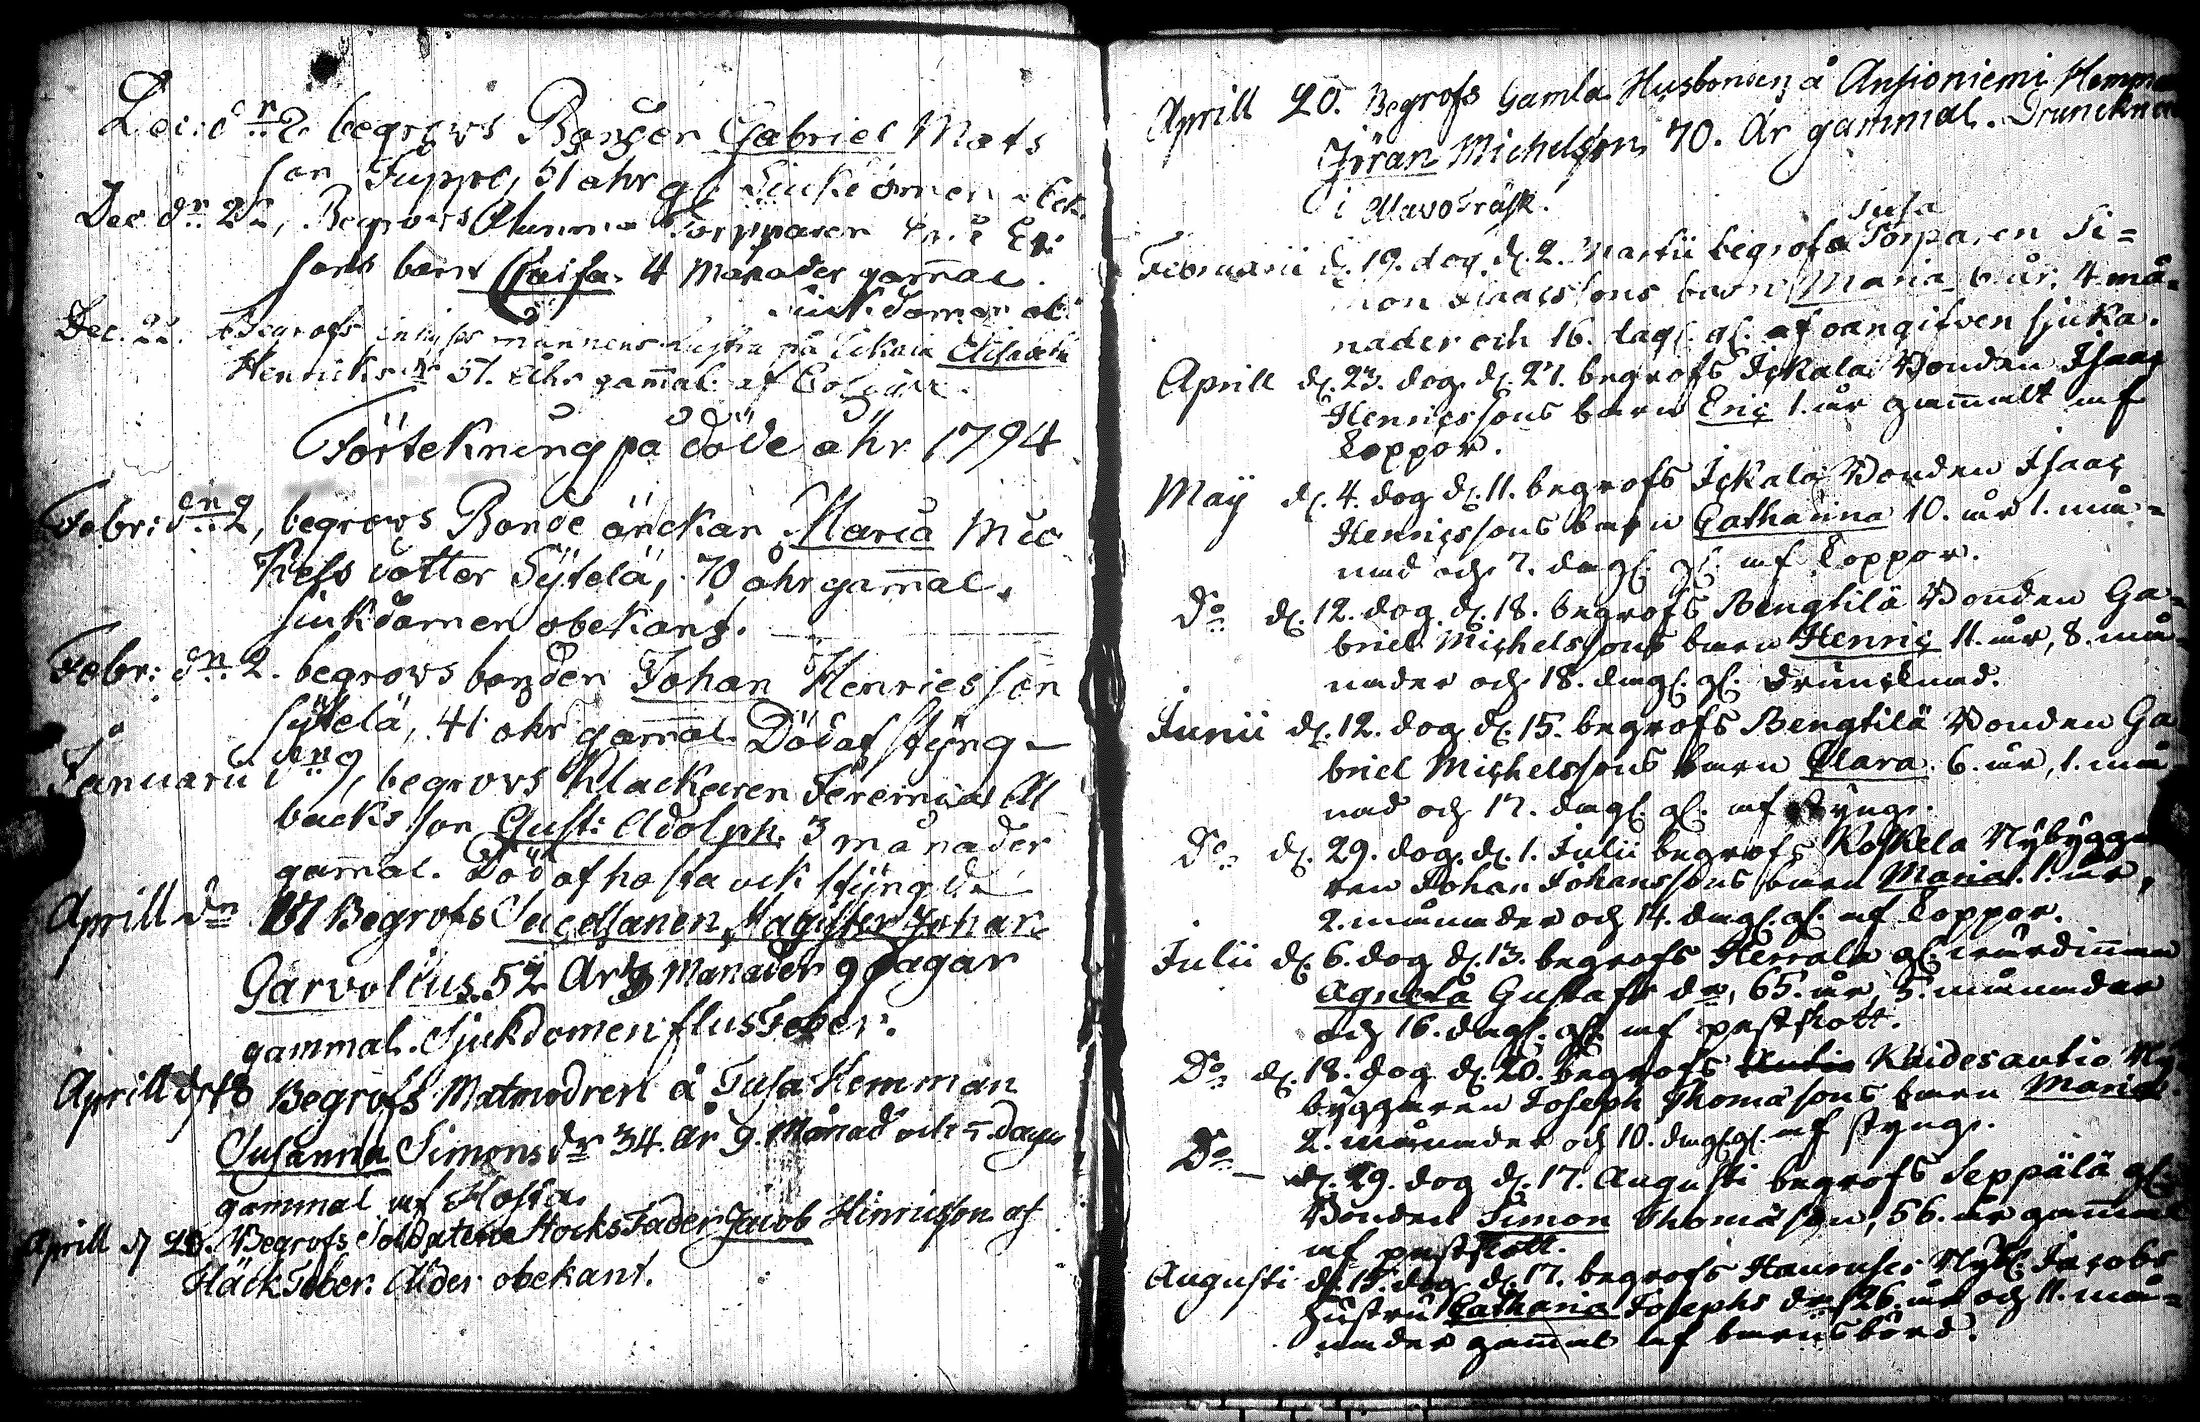 Dec: dn 2 begrovs Bonden Gabriel Mats
son Tuppo, 51 åhr gl. Siukdomen obek.
Dec dn 22, Begrovs Torpparen Eric Er:
sons barn Caisa 4 Månader gam̄al.
siukdomen ob:
Dec. 22. Begrofs hustru på Elisabeth
Henricksdr 57. åhr gam̄al af
Förtekning på döde åhr 1794
Febr: dn 2, begrovs Bonde änckan Maria Mic
kels dotter Sÿtelä, 70 åhr gam̄al,
siukdomen obekant.
Febr: dn 2. begrovs bonden Johan Henricsson
Sÿtelä, 41 åhr gam̄al Död af stÿng
Januarii dn 9, begrovs Klackaren Jeremias Al
backs son Gust: Adolph. 3 månader
gam̄al. Död af hosta ock stÿng
Aprill dn Begrofs Sacellanen, Magister Johan
Garvolius. 52 År 3 Månader 9 Dagar
gammal. Sjukdomen flusfeber.
Aprill d 18 Begrofs Matmodren å Tusa Hemman
Susanna Simons dr 34. år 9. Månad och 5. Dagar
gammal af Hosta.
Aprill d 20. Begrofs Soldatens Stocks Fader Jacob Hinricsson af
Fläckfeber. Ålder obekant.
Aprill 20. Begrofs Gamla Husbonden å Ansioniemi Hemman
Jöran Michelsson 70. År gammal. Druncknad
i Alavo Träsk.
Tusa
Februarii d. 19. dog, d. 2. Martii begrofs Torparen Si=
mon Isaacssons barn Maria 6. år, 4. må=
nader och 16. dag. gl. af oangifven sjuka.
Aprill d. 23. dog d. 27. begrofs Ickala Bonden Isaac
Henricssons barn Eric 1. år gam̄alt af
koppor.
Maÿ d. 4. dog d. 11. begrofs Ickala Bonden Isaac
Henricssons barn Catharina 10. år 1. må=
nad och 7. dag. gl. af koppor.
Do d. 12. dog. d. 18. begrofs Bengtilä Bonden Ga=
briel Michelssons barn Henric 11. år, 8. må=
nader och 18. dag. gl. druncknad.
Junii d. 12. dog d. 15. begrofs Bengtilä Bonden Ga
briel Michelssons barn Clara. 6. år, 1. må
nad och 17. dag. gl. af styng.
Do d. 29. dog. d. 1. Julii begrofs Koskela Nÿbÿgga
ren Johan Johanssons barn Maria. 1. år,
2. månader och 14. dag. gl. af koppor.
Julii d. 6. dog d. 13. begrofs Herrala gl. värdinnan
Agneta Gustafs dr, 65. år, 5. månader
och 16. dag. gl. af pestskott.
Do d. 18. dog d. 20. begrofs Kaidesautio Nÿ
bÿggaren Joseph Thomäsons barn Maria
2. månader och 10. dag. gl. af styng.
Do d. 29. dog d. 17. Augusti begrofs Seppälä gl.
Bonden Simon Thomäson, 56. år gam̄al
af pestskott.
Augusti d. 15. dog d. 17. begrofs Nÿb. Jacobs
hustru Catharina Josephs dr 26. år och 11. må=
nader gam̄al af barnsbörd.